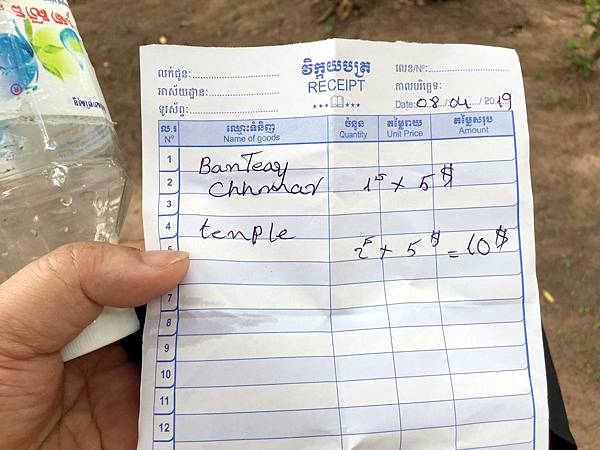 វិក្កយបត្រ
RECEIPT
លក់ជូន:
អាស័យដ្ឋាន:
ទូរស័ព្ទ:
លេខ/Nº:
កាលបរិច្ឆេទ:
Date: 08 / 04 / 2019
ល.រ ឈ្មោះទំនិញ ចំនួន តម្លៃរាយ តម្លៃសរុប
Nº Name of goods Quantity Unit Price Amount
1 Banteay
2 Chhmar 1 x 5 $
3
4 temple
5 2 x 5 $ = 10 $
7
8
9
10
11
12